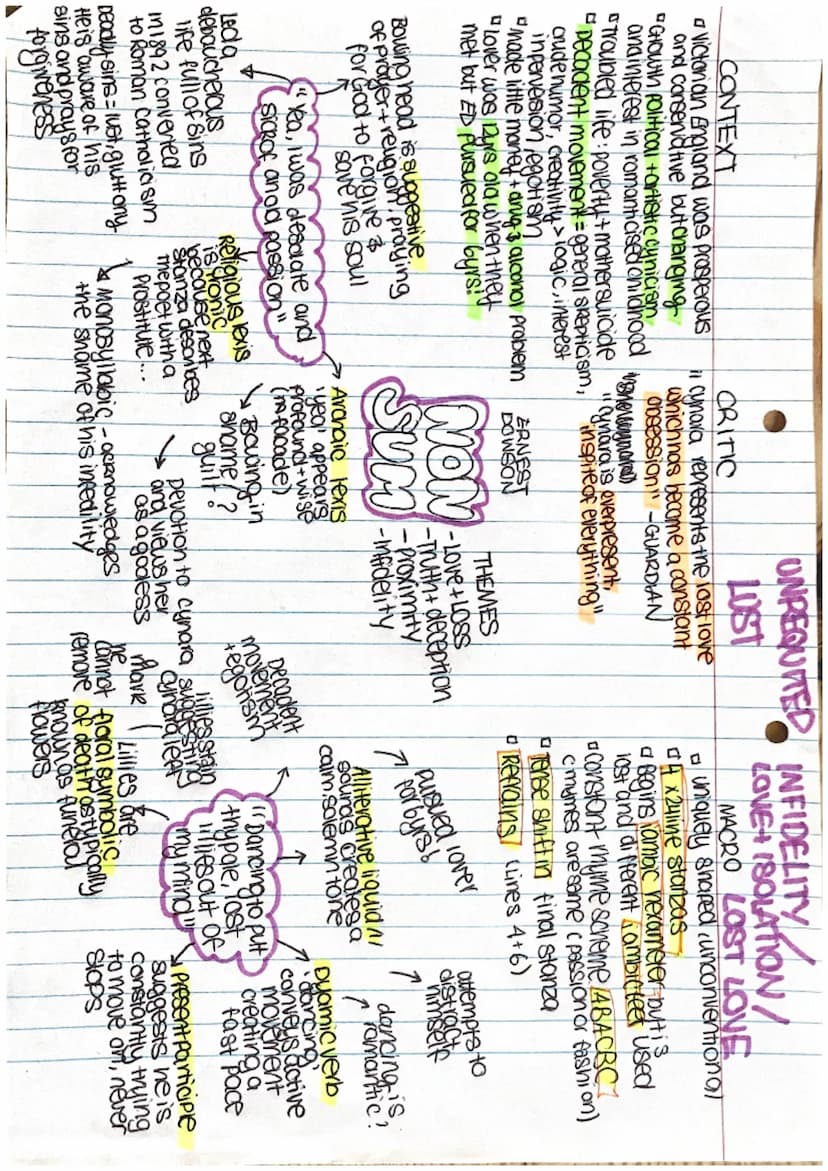 UNREQUITED
LUST
INFIDELITY/
LOVE + ISOLATION/
LOST LOVE
CONTEXT
▫ Victorian England was prosperous
and conservative but changing
▫ Growth political + artistic cynicism
and interest in romanticised childhood
▫ Troubled life: poverty + mother suicide
▫ Decadent movement = general skepticism,
crude humor, creativity > logic, interest
in perversion, egotism
▫ Made little money + drug & alcohol problem
▫ Lover was 12yrs old when they
met but ED pursued for 6yrs!
CRITIC
" Cynara represents the lost love
which has become a constant
obsession" - GUARDIAN
"Cynara is everpresent,
inspite of everything"
MACRO
▫ uniquely shaped (unconventional)
▫ 4 x 2 line stanzas
▫ Begins iambic hexameter but it is
lost and different iambic feet used
▫ Constant rhyme scheme ABACBC
C rhymes are same (passion or fashion)
▫ Tense shift in final stanza
▫ Refrains (lines 4+6)
ERNEST
DOWSON
NON
SUM
THEMES
- LOVE + LOSS
- Truth + deception
- proximity
- infidelity
Bowing head is suggestive
of prayer + religion, praying
for God to forgive &
save his soul
"Yea, I was desolate and
sick of an old passion"
Led a
debaucherous
life full of sins
in 1892 converted
to Roman Catholicism
Deadly sins = lust, gluttony
He is aware of his
sins and prays for
forgiveness
Religious lexis
is ironic
because next
stanza describes
the poet with a
prostitute...
Monosyllabic - acknowledges
the shame of his infedility
Archaic lexis
'yea' appears
profound + wise
(in facade)
Bowing in
shame /
guilt?
Devotion to Cynara
and views her
as a godess
pusued lover
for 6yrs!
Alliterative liquid /l/
sounds creates a
calm solemn tone
Decadent
movement
+ egotism
"Dancing to put
thy pale, lost
lilies out of
my mind"
lillies stain
suggesting
Cynara left
mark
he
cannot
remove
Lillies are
floral symbolic
of death as typically
known as funeral
flowers
attempts to
distract
himself
dancing is
romantic?
Dyamic verb
'dancing'
conveys active
movement
creating a
fast pace
Present participle
suggests he is
constantly trying
to move on, never
stops